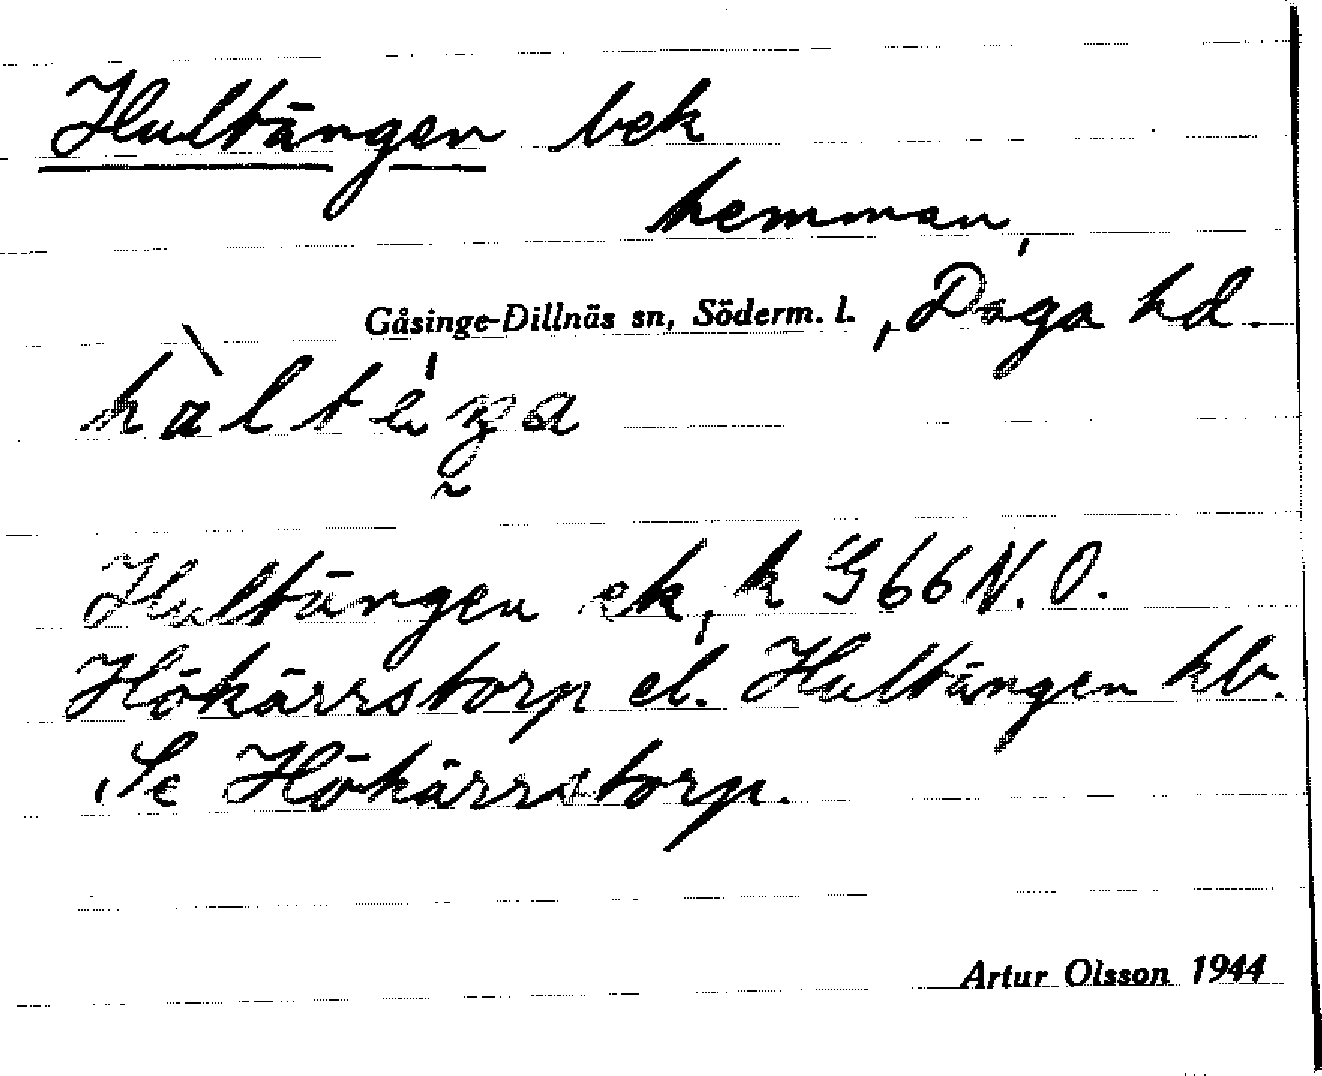 Hultängen bek
hemman,
Gåsinge-Dillnäs sn, Söderm. l. , Daga hd.
Hultängen ek, h G66 N.O.
Hökärrstorp el. Hultängen kb.
Se Hökärrstorp.
Artur Olsson 1944